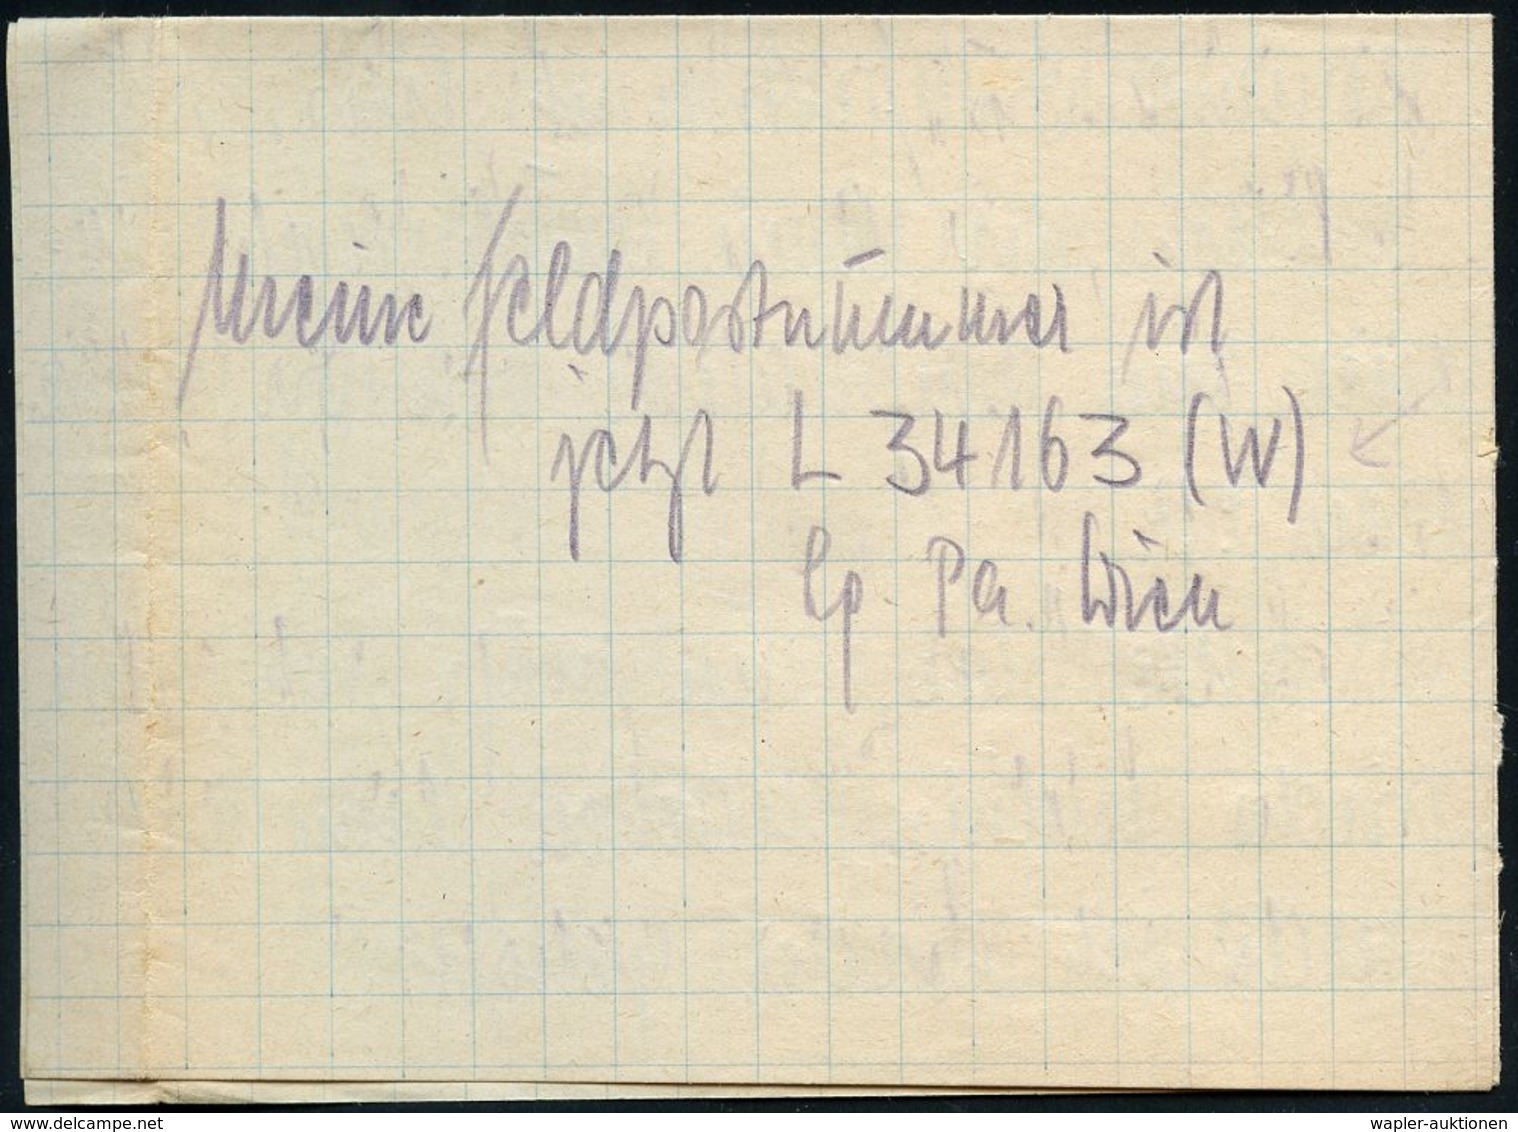 Meine Feldpostnummer ist
jetzt L 34163 (W)
Lg. Pa. Wien
www.delcampe.net
wapler-auktionen